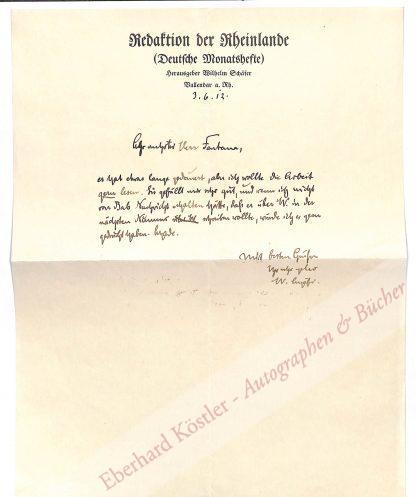 Redaktion der Rheinlande
(Deutsche Monatshefte)
Herausgeber Wilhelm Schäfer
Vallendar a. Rh.
3. 6. 12.
Sehr geehrter Herr Fontana,
es hat etwas lange gedauert, aber ich wollte die Arbeit
gern lesen. Sie gefällt mir sehr gut, und wenn ich nicht
von Bab Nachricht erhalten hätte, daß er über W. in der
nächsten Nummer schreiben wollte, würde ich es gern
gedruckt haben.
Mit besten Grüßen
Ihr sehr
W. Schäfer.
Eberhard Köstler - Autographen & Bücher